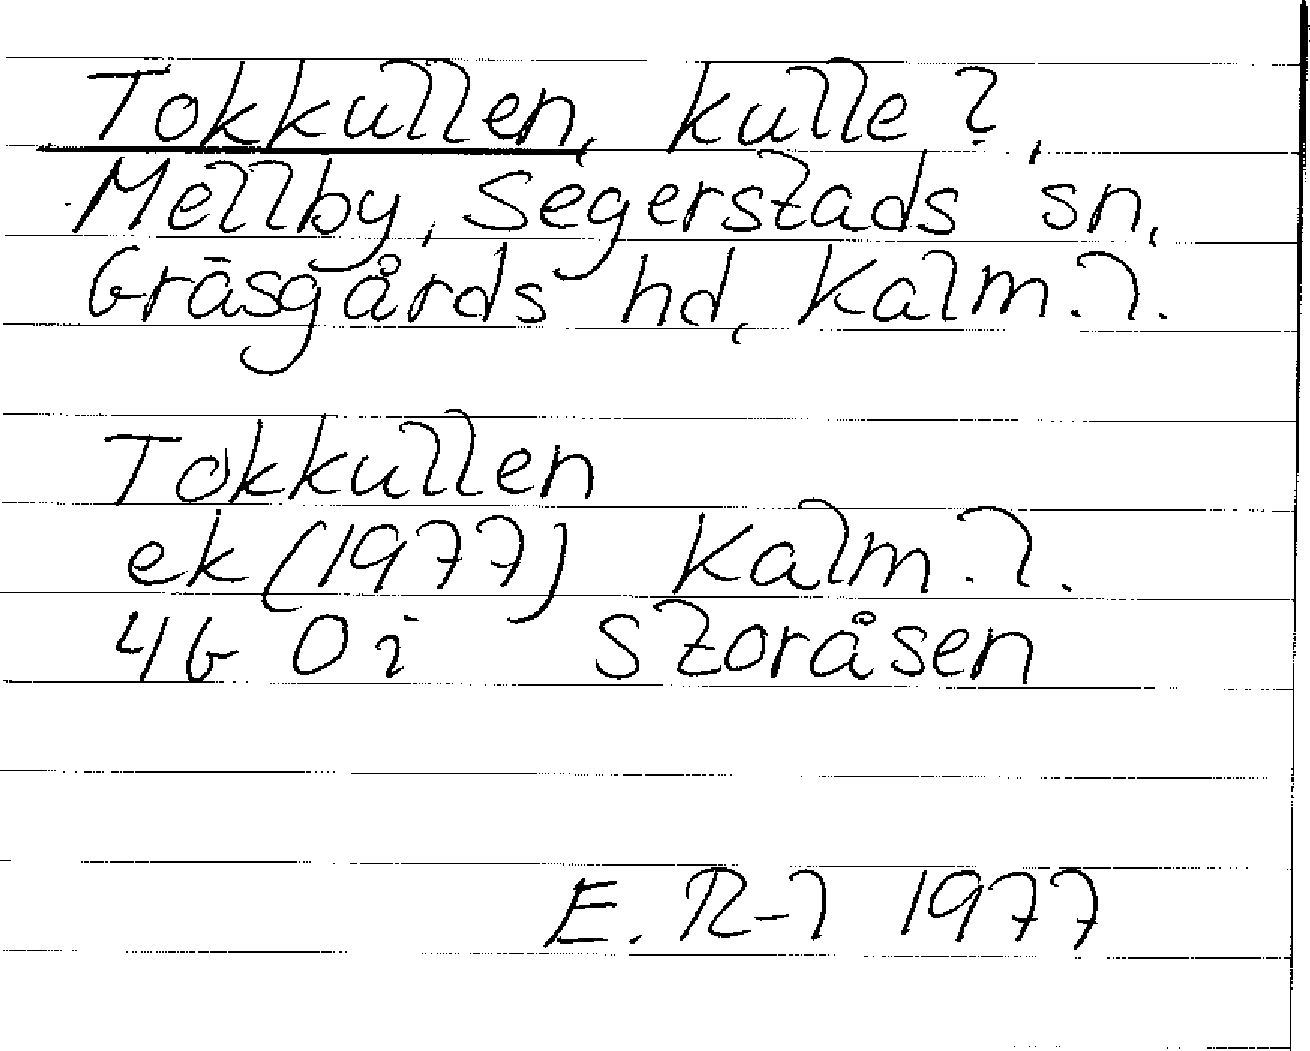 Tokkullen, kulle?,
Mellby, Segerstads sn,
Gräsgårds hd, Kalm. l.
Tokkullen
ek (1977) Kalm. l.
4G 0i Storåsen
E. R-l 1977